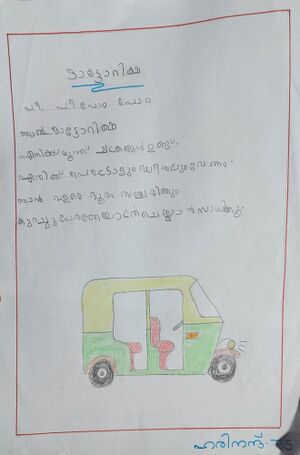 ഓട്ടോറിക്ഷ
പീ, പീപോം പോം
ഞാൻ ഓട്ടോറിക്ഷ
എനിക്ക് മൂന്ന് ചക്രങ്ങൾ ഉണ്ട്.
എനിക്ക് പെട്രോളും ഡീസലും വേണം.
ഞാൻ വളരെ ദൂരം സഞ്ചരിക്കും.
കുറച്ചുപേർക്കേ യാത്രചെയ്യാൻ സാധിക്കൂ.
ഹരിനന്ദ്